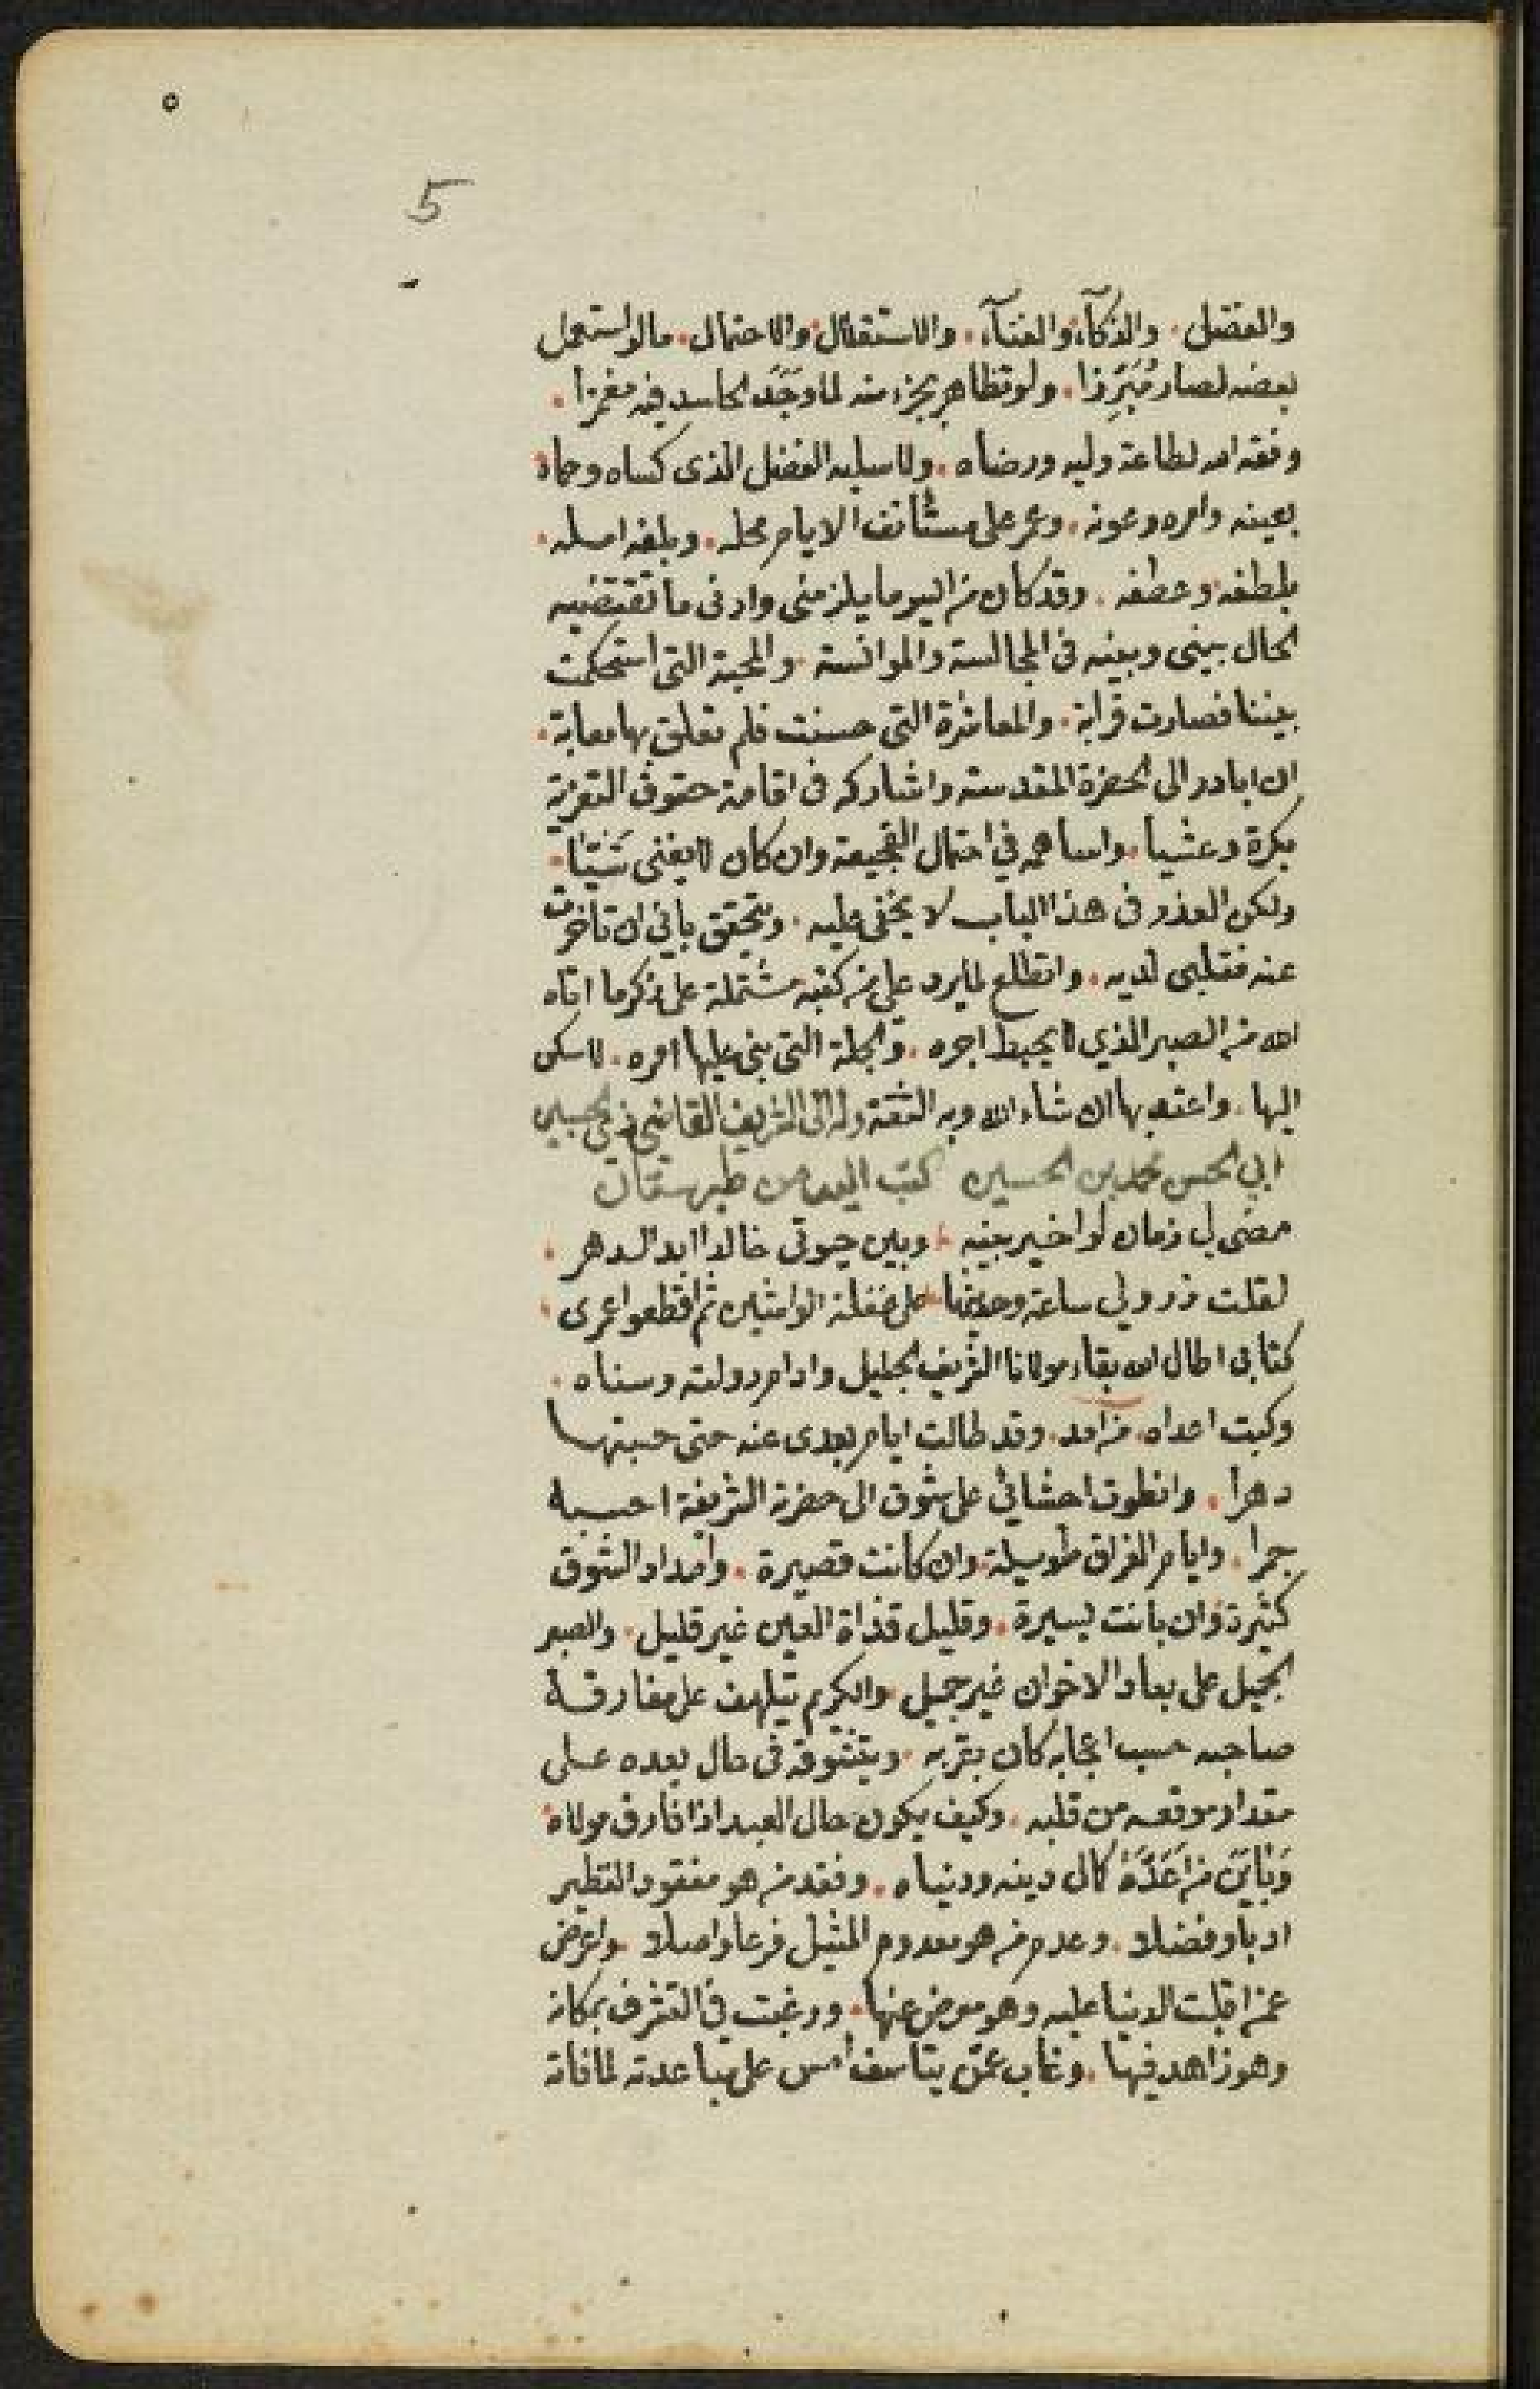 ٥
5
والفضل. والذكآء والغنآء. والاستقلال والاحتمال. مالو استعمل
بعضه لصار مُبَرِزا. ولو تظاهر بجزء منه لما وَجَدَ الحاسد فيه مغمزا.
وفقه الله لطاعة وليه ورضاه. ولا سلبه الفضل الذى كساه وحماه
بعينه وامره وعونه. وعمر على مستأنف الايام محله. وبلغه امله.
بلطفه وعطفه. وقد كان من اليوم ما يلزمنى وادنى ما تقتضيه
الحال بينى وبينه فى المجالسة والموانسة. والمحبة التى استحكمت
بيننا فصارت قرابة. والمعاشرة التى حسنت فلم تعلق بها معابة.
ان ابادر الى الحضرة المقدسة واشاركه فى اقامة حقوق التعزية
بكرة وعشيا. واساهمه في احتمال الفجيعة وان كان لا يغنى شَيْئا.
ولكن العذر فى هذا الباب لا يخفى عليه. وتحقق بانى ان تأخرت
عنه فقلبى لديه. واتطلع لما يرد على من كتبه مشتملة على ذكر ما اتاه
الله من الصبر الذي لا يحبط اجره. والجملة التى بنى عليها امره. لاسكن
اليها. واعتد بها ان شاء الله وبه الثقة وله الى الشريف القاضى ذى الحسبين
ابي الحسن محمد بن الحسين كتب اليه من طبرستان
مضى لى زمان لو اخير بينه. وبين حيوتى خالدا ابد الدهر.
لقلت ذرونى ساعة وحديثها. على غفلة الواشين ثم اقطعوا عمرى.
كتابى اطال الله بقاء مولانا الشريف الجليل وادام دولته وسناه.
وكبت اعداه. من امد. وقد طالت ايام بعدى عنه حتى حسبتها
دهرا. وانطوت احشائى على شوق الى حضرته الشريفة احسبه
جمرا. وايام الفراق طويلة وان كانت قصيرة. وامداد الشوق
كثيرة وان بانت يسيرة. وقليل قذاة العين غير قليل. والصبر
الجميل على بعاد الاخوان غير جميل. والكريم يتلهف على مفارقة
صاحبه حسب اعجابه كان بقربه. ويتشوقه فى حال بعده على
مقدار موقعه من قلبه. وكيف يكون حال العبد اذا فارق مولاه
وَبَايَنَ من اَعَدَّهُ كمال دينه ودنياه. وفقد من هو مفقود النظير
ادبا وفضلا. وعدم من هو معدوم المثيل فرعا واصلا. واعرض
عمن اقبلت الدنيا عليه وهو معرض عنها. ورغبت فى التشرف بمكانه
وهو زاهد فيها. وغاب عمن يتاسف امس على مباعدته لما فاته